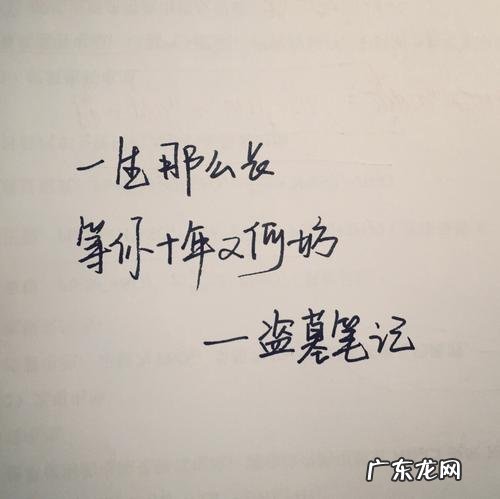 一生那么长
等你十年又何妨
一盗墓笔记
广东龙网